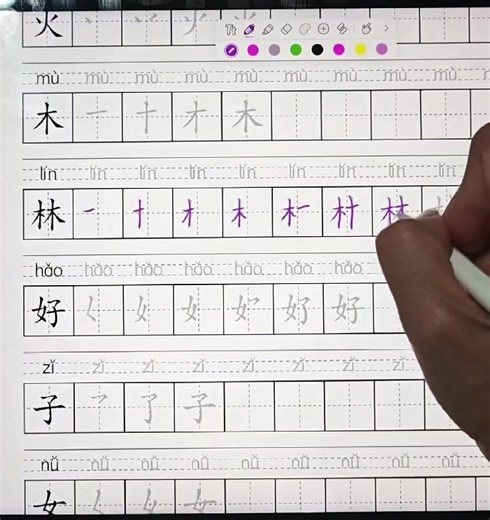 火 火
mù mù mù mù mù mù mù mù mù
木 一 十 才 木
lín lín lín lín lín lín lín lín lín
林 一 十 才 木
hǎo hǎo hǎo hǎo hǎo hǎo hǎo
好 好
zǐ zǐ zǐ zǐ zǐ zǐ zǐ zǐ
子 了 子
nǚ nǚ nǚ nǚ nǚ nǚ nǚ nǚ nǚ
女 女